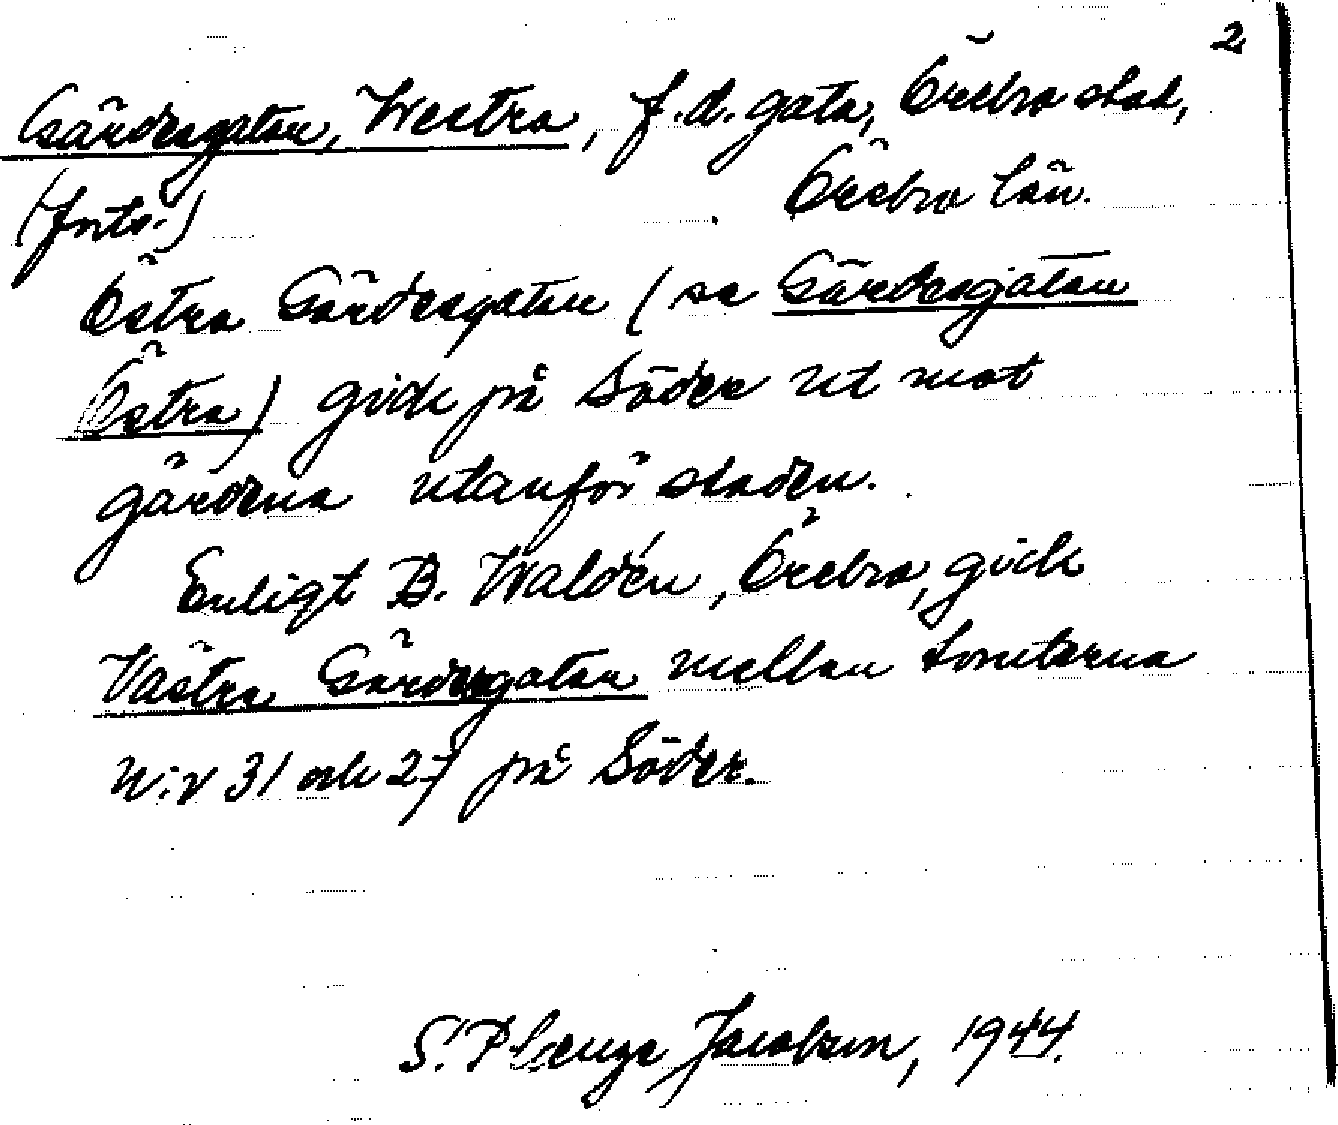 2
Gärdesgatan, Westra, f.d. gata, Örebro stad,
(forts.) Örebro län.
Östra Gärdesgatan (se Gärdesgatan
Östra) gick på Söder ut mot
gärdena utanför staden.
Enligt B. Waldén, Örebro, gick
Västra Gärdesgatan mellan tomterna
n:r 31 och 27 på Söder.
S. Plenge Jacobson, 1944.